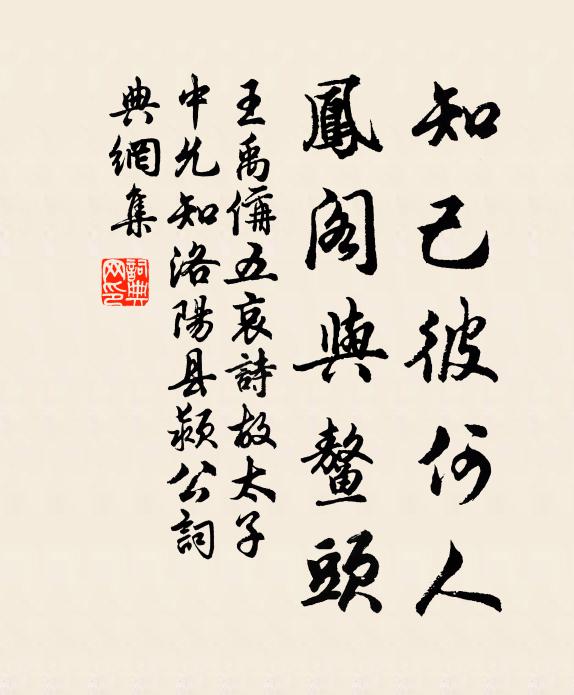 知己彼何人
鳳閣與鼇頭
王禹偁五哀詩故太子
中允知洛陽县颍公詞
典網集
詞典网印